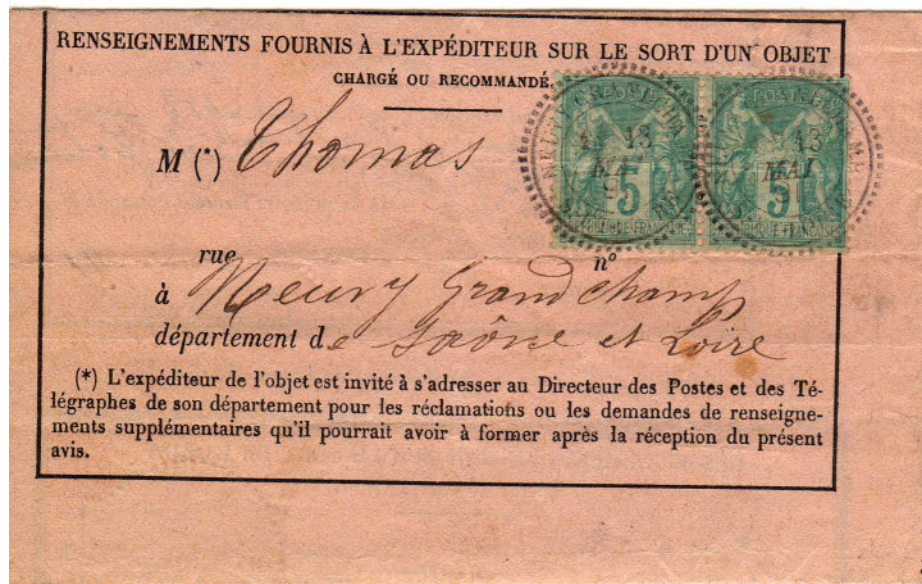 RENSEIGNEMENTS FOURNIS À L'EXPÉDITEUR SUR LE SORT D'UN OBJET
CHARGÉ OU RECOMMANDÉ.
M (*) Thomas
13 MAI
5
13 MAI
5
rue n°
à Neuvy Grandchamp
département de Saône et Loire
(*) L'expéditeur de l'objet est invité à s'adresser au Directeur des Postes et des Té-
légraphes de son département pour les réclamations ou les demandes de renseigne-
ments supplémentaires qu'il pourrait avoir à former après la réception du présent
avis.